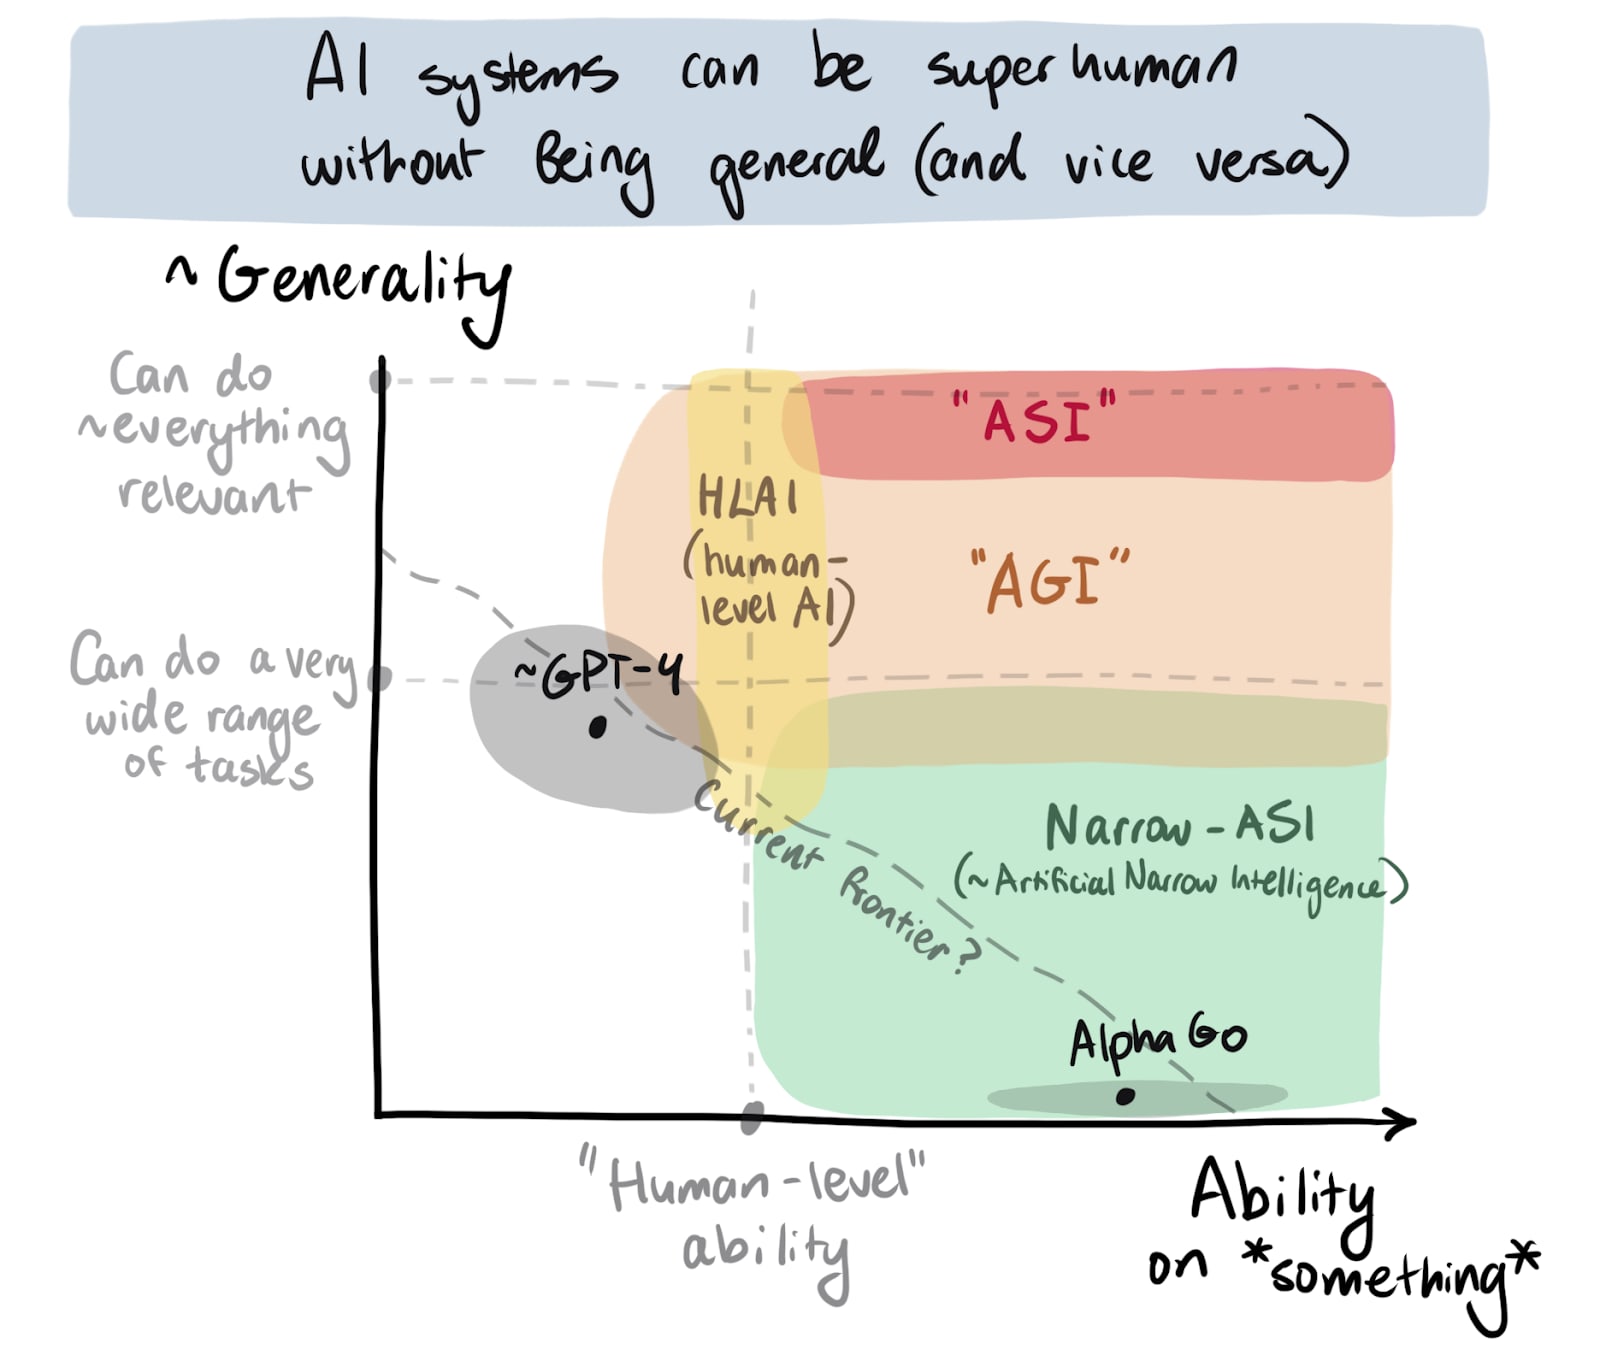 AI systems can be superhuman
without Being general (and vice versa)
~ Generality
Can do
~everything
relevant
"ASI"
HLAI
(human-
level AI)
"AGI"
Can do a very
wide range
of tasks
~GPT-4
Current frontier?
Narrow-ASI
(~Artificial Narrow Intelligence)
AlphaGo
"Human-level"
ability
Ability
on *something*